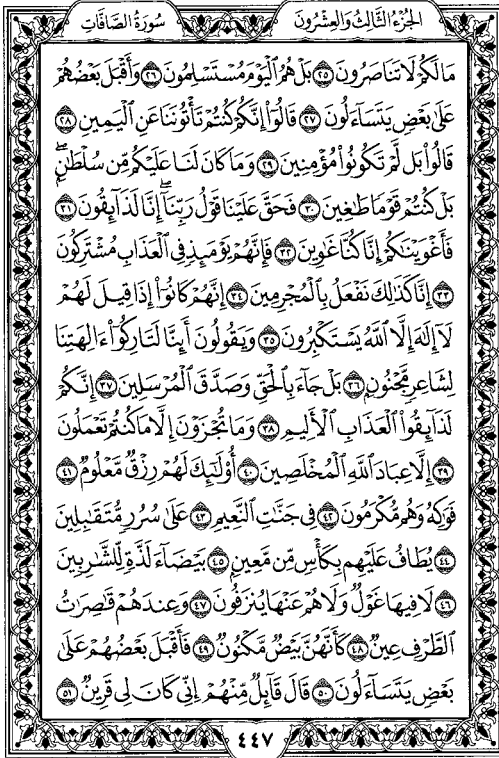 سُورَةُ الصَّافَّاتِ
الجُزْءُ الثَّالِثُ وَالعِشْرُونَ
مَا لَكُمْ لَا تَنَاصَرُونَ ٢٥ بَلْ هُمُ الْيَوْمَ مُسْتَسْلِمُونَ ٢٦ وَأَقْبَلَ بَعْضُهُمْ
عَلَىٰ بَعْضٍ يَتَسَاءَلُونَ ٢٧ قَالُوا إِنَّكُمْ كُنتُمْ تَأْتُونَنَا عَنِ الْيَمِينِ ٢٨
قَالُوا بَل لَّمْ تَكُونُوا مُؤْمِنِينَ ٢٩ وَمَا كَانَ لَنَا عَلَيْكُم مِّن سُلْطَانٍۖ
بَلْ كُنتُمْ قَوْمًا طَاغِينَ ٣٠ فَحَقَّ عَلَيْنَا قَوْلُ رَبِّنَاۖ إِنَّا لَذَائِقُونَ ٣١
فَأَغْوَيْنَاكُمْ إِنَّا كُنَّا غَاوِينَ ٣٢ فَإِنَّهُمْ يَوْمَئِذٍ فِي الْعَذَابِ مُشْتَرِكُونَ
٣٣ إِنَّا كَذَٰلِكَ نَفْعَلُ بِالْمُجْرِمِينَ ٣٤ إِنَّهُمْ كَانُوا إِذَا قِيلَ لَهُمْ
لَا إِلَٰهَ إِلَّا اللَّهُ يَسْتَكْبِرُونَ ٣٥ وَيَقُولُونَ أَئِنَّا لَتَارِكُو آلِهَتِنَا
لِشَاعِرٍ مَّجْنُونٍ ٣٦ بَلْ جَاءَ بِالْحَقِّ وَصَدَّقَ الْمُرْسَلِينَ ٣٧ إِنَّكُمْ
لَذَائِقُو الْعَذَابِ الْأَلِيمِ ٣٨ وَمَا تُجْزَوْنَ إِلَّا مَا كُنتُمْ تَعْمَلُونَ
٣٩ إِلَّا عِبَادَ اللَّهِ الْمُخْلَصِينَ ٤٠ أُولَٰئِكَ لَهُمْ رِزْقٌ مَّعْلُومٌ ٤١
فَوَاكِهُ وَهُم مُّكْرَمُونَ ٤٢ فِي جَنَّاتِ النَّعِيمِ ٤٣ عَلَىٰ سُرُرٍ مُّتَقَابِلِينَ
٤٤ يُطَافُ عَلَيْهِم بِكَأْسٍ مِّن مَّعِينٍ ٤٥ بَيْضَاءَ لَذَّةٍ لِّلشَّارِبِينَ
٤٦ لَا فِيهَا غَوْلٌ وَلَا هُمْ عَنْهَا يُنزَفُونَ ٤٧ وَعِندَهُمْ قَاصِرَاتُ
الطَّرْفِ عِينٌ ٤٨ كَأَنَّهُنَّ بَيْضٌ مَّكْنُونٌ ٤٩ فَأَقْبَلَ بَعْضُهُمْ عَلَىٰ
بَعْضٍ يَتَسَاءَلُونَ ٥٠ قَالَ قَائِلٌ مِّنْهُمْ إِنِّي كَانَ لِي قَرِينٌ ٥١
٤٤٧